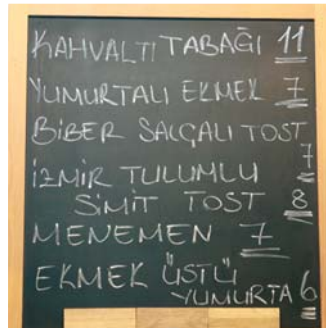 KAHVALTI TABAĞI 11
YUMURTALI EKMEK 7
BİBER SALÇALI TOST
7
İZMİR TULUMLU
SİMİT TOST 8
MENEMEN 7
EKMEK ÜSTÜ
YUMURTA 6